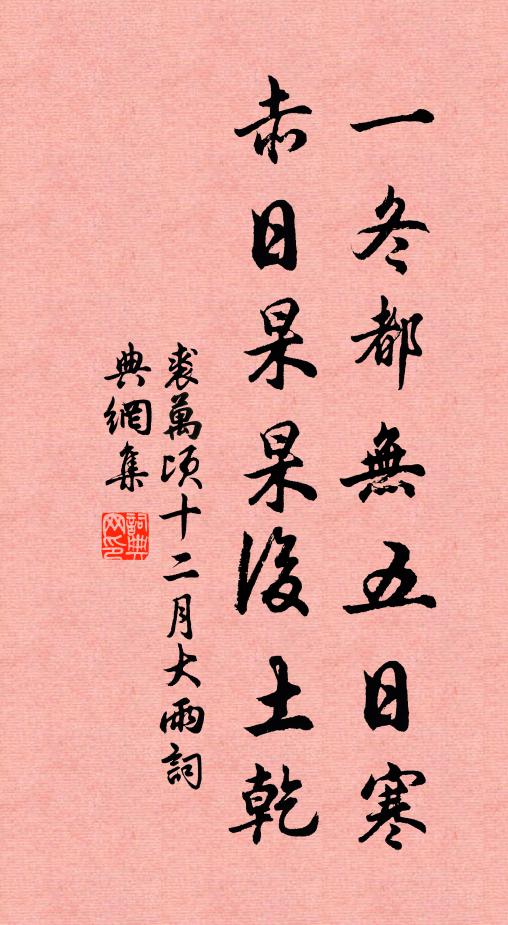 一冬都無五日寒
赤日杲杲後土乾
裘萬頃十二月大雨詞
典網集
詞典
网印